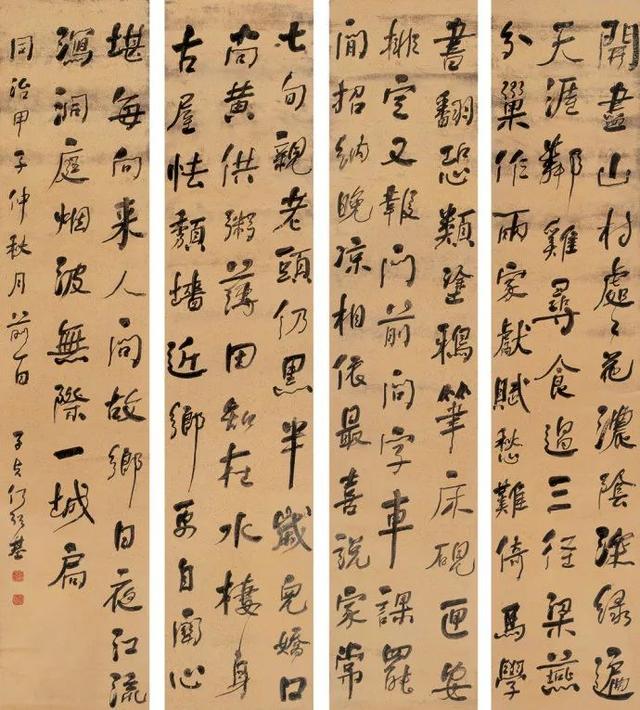 開盡山村處〻花濃陰深綠遍
天涯鄰雞尋食過三徑梁燕
分巢作兩家獻賦愁難倚馬學
書翻恐類塗鴉筆床硯匣安
排定又報門前問字車課罷
閒招納晚涼相依最喜說家常
七旬親老頭仍黑半歲兒嬌口
尚黄供粥薄田知在水棲身
古屋怯頹墻近鄉更自關心
堪每向来人問故鄉日夜江流
瀉洞庭烟波無際一城扃
同治甲子仲秋月前一日 子貞何紹基